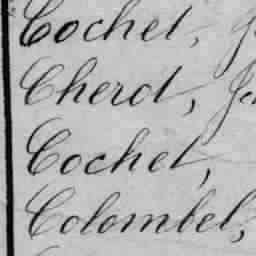 Cochet, J
Cherct, Je
Cochet,
Colombel,